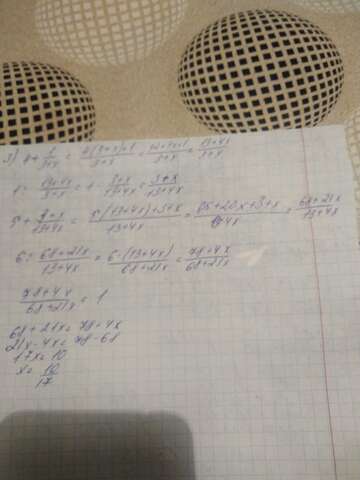 3) 4 + 1/3+x = 4(3+x)+1/3+x = 12+4x+1/3+x = 13+4x/3+x
1 = 13+4x/3+x = 1 · 3+x/13+4x = 3+x/13+4x
5 + 3+x/13+4x = 5(13+4x)+3+x/13+4x = 65+20x+3+x/13+4x = 68+21x/13+4x
6 = 68+21x/13+4x = 6·(13+4x)/68+21x = 78+4x/68+21x
78+4x/68+21x = 1
68+21x = 78+4x
21x-4x = 78-68
17x = 10
x = 10/17